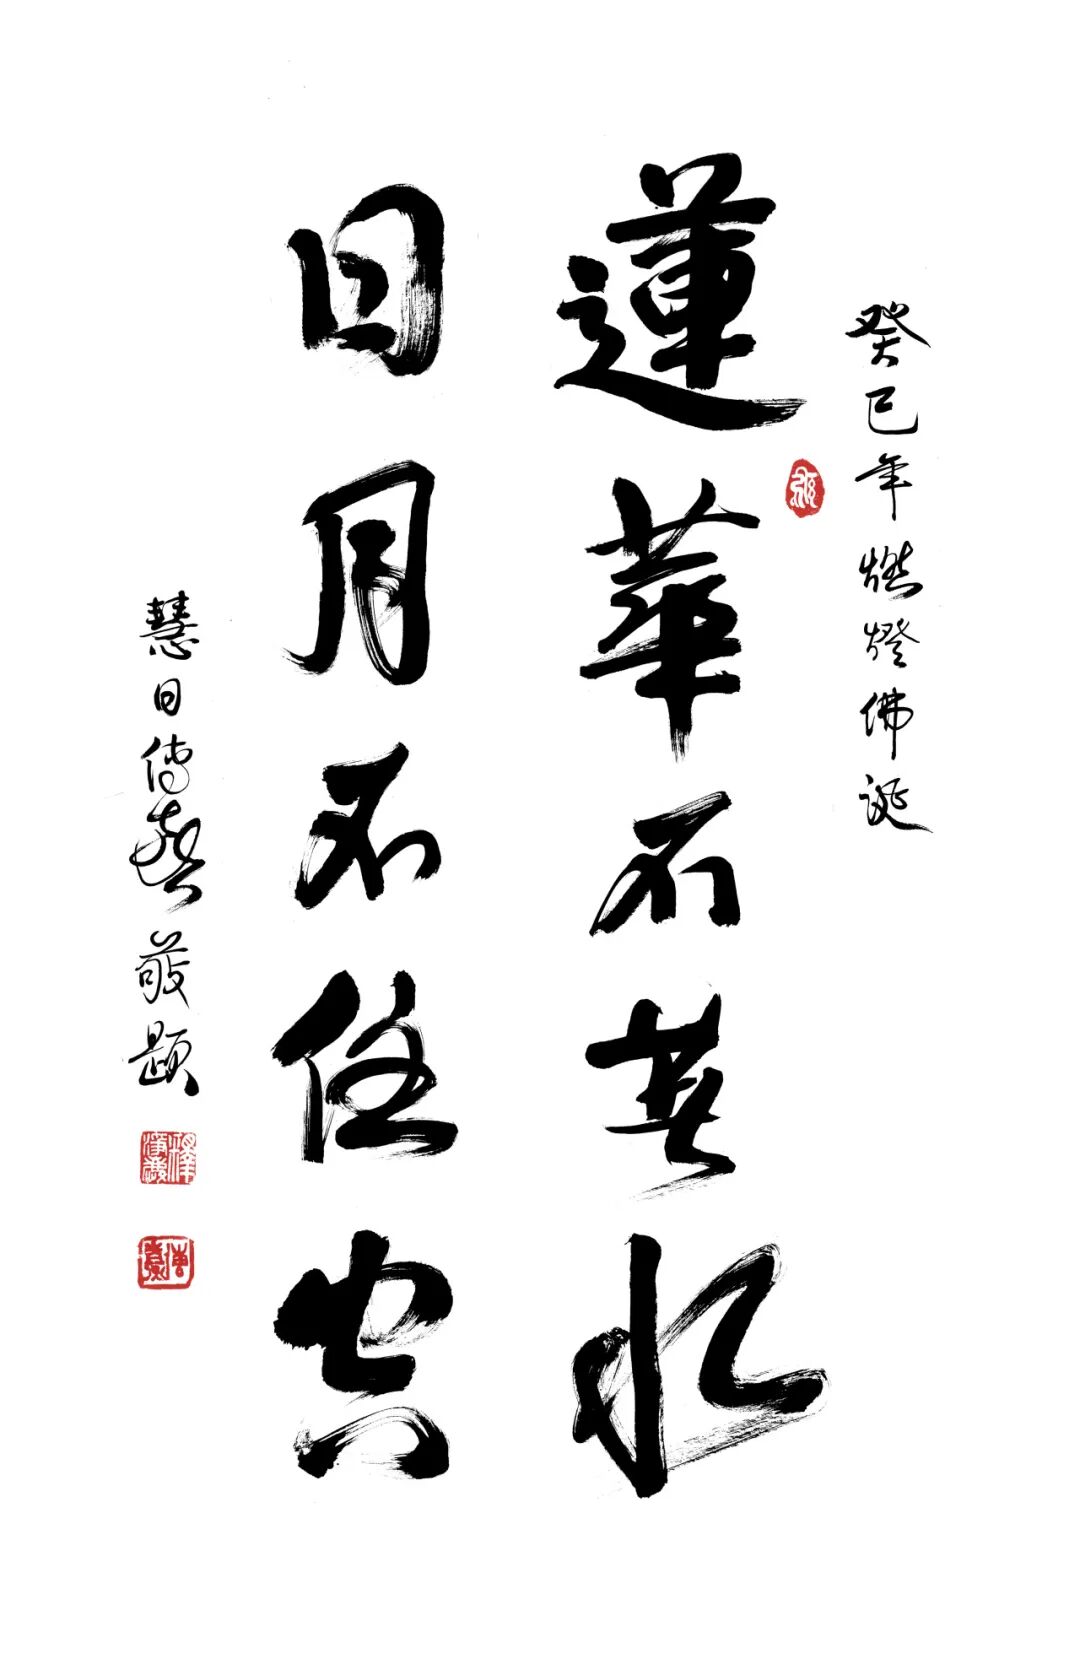 癸巳年燃燈佛誕
蓮華不著水
日月不住空
慧日傳喜敬題